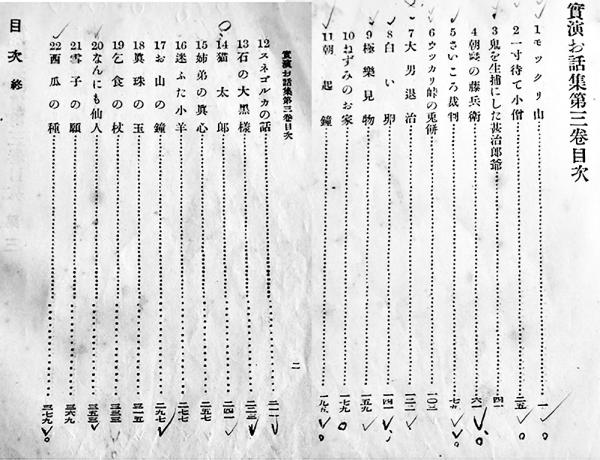 實演お話集第三卷目次
1モックリ山 一
2一寸待て小僧 二五
3鬼を生捕にした甚治郎爺 四一
4朝寢の藤兵衞 六一
5さいころ裁判 七九
6ウツカリ峠の兎餅 一〇三
7大男退治 一二一
8白い卵 一四一
9極樂見物 一五九
10ねずみのお家 一七九
11朝起鐘 一九五
實演お話集第三卷目次
二
12スネゴルカの話 二一一
13石の大黑樣 二二三
14猫太郎 二四一
15姉弟の眞心 二五七
16迷ふた小羊 二七七
17お山の鐘 二九七
18眞珠の玉 三一五
19乞食の杖 三三三
20なんにも仙人 三五三
21雪子の願 三六九
22西瓜の種 三七九
目次 終